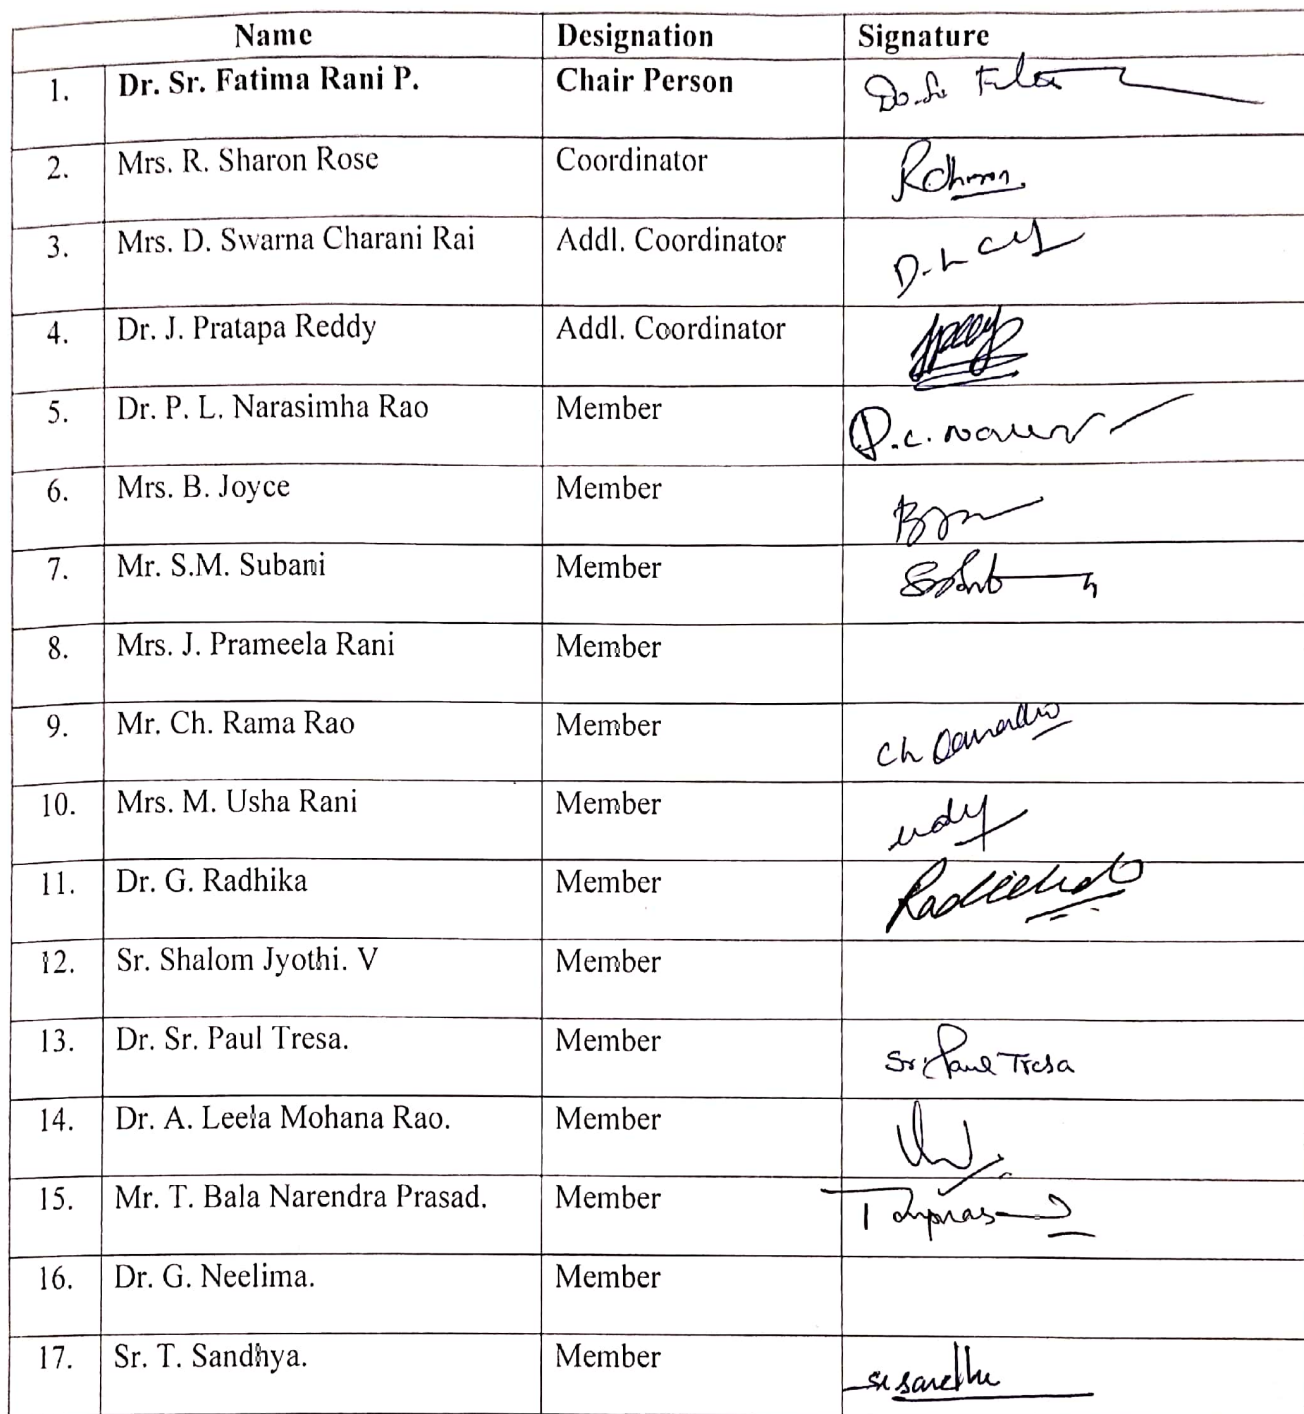 Name Designation Signature
1. Dr. Sr. Fatima Rani P. Chair Person
2. Mrs. R. Sharon Rose Coordinator
3. Mrs. D. Swarna Charani Rai Addl. Coordinator
4. Dr. J. Pratapa Reddy Addl. Coordinator
5. Dr. P. L. Narasimha Rao Member
6. Mrs. B. Joyce Member
7. Mr. S.M. Subani Member
8. Mrs. J. Prameela Rani Member
9. Mr. Ch. Rama Rao Member Ch
10. Mrs. M. Usha Rani Member
11. Dr. G. Radhika Member
12. Sr. Shalom Jyothi. V Member
13. Dr. Sr. Paul Tresa. Member Sr. Paul Tresa
14. Dr. A. Leela Mohana Rao. Member
15. Mr. T. Bala Narendra Prasad. Member
16. Dr. G. Neelima. Member
17. Sr. T. Sandhya. Member